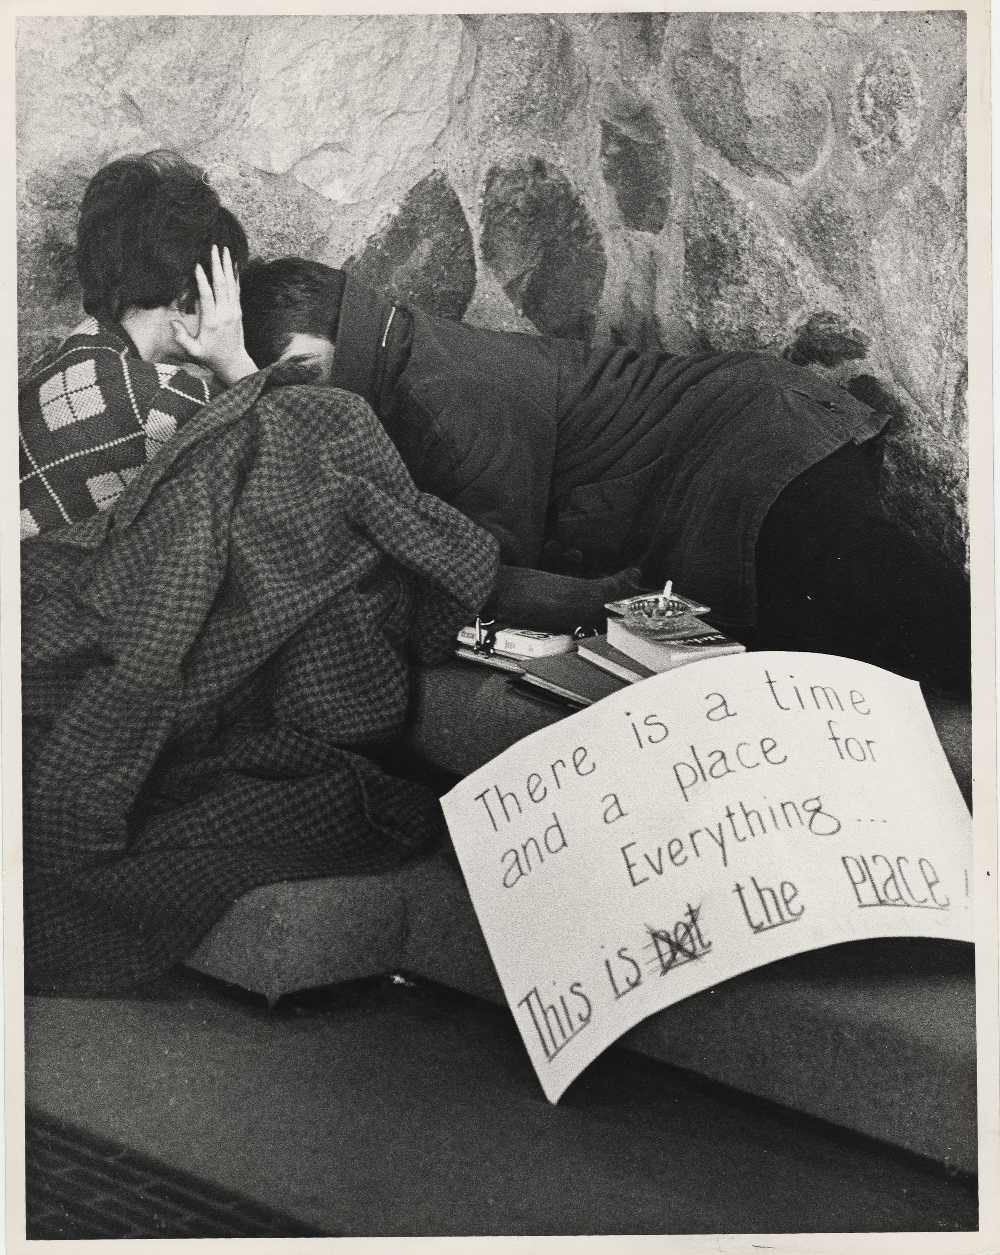 There is a time
and a place for
Everything...
This is not the PLACE!